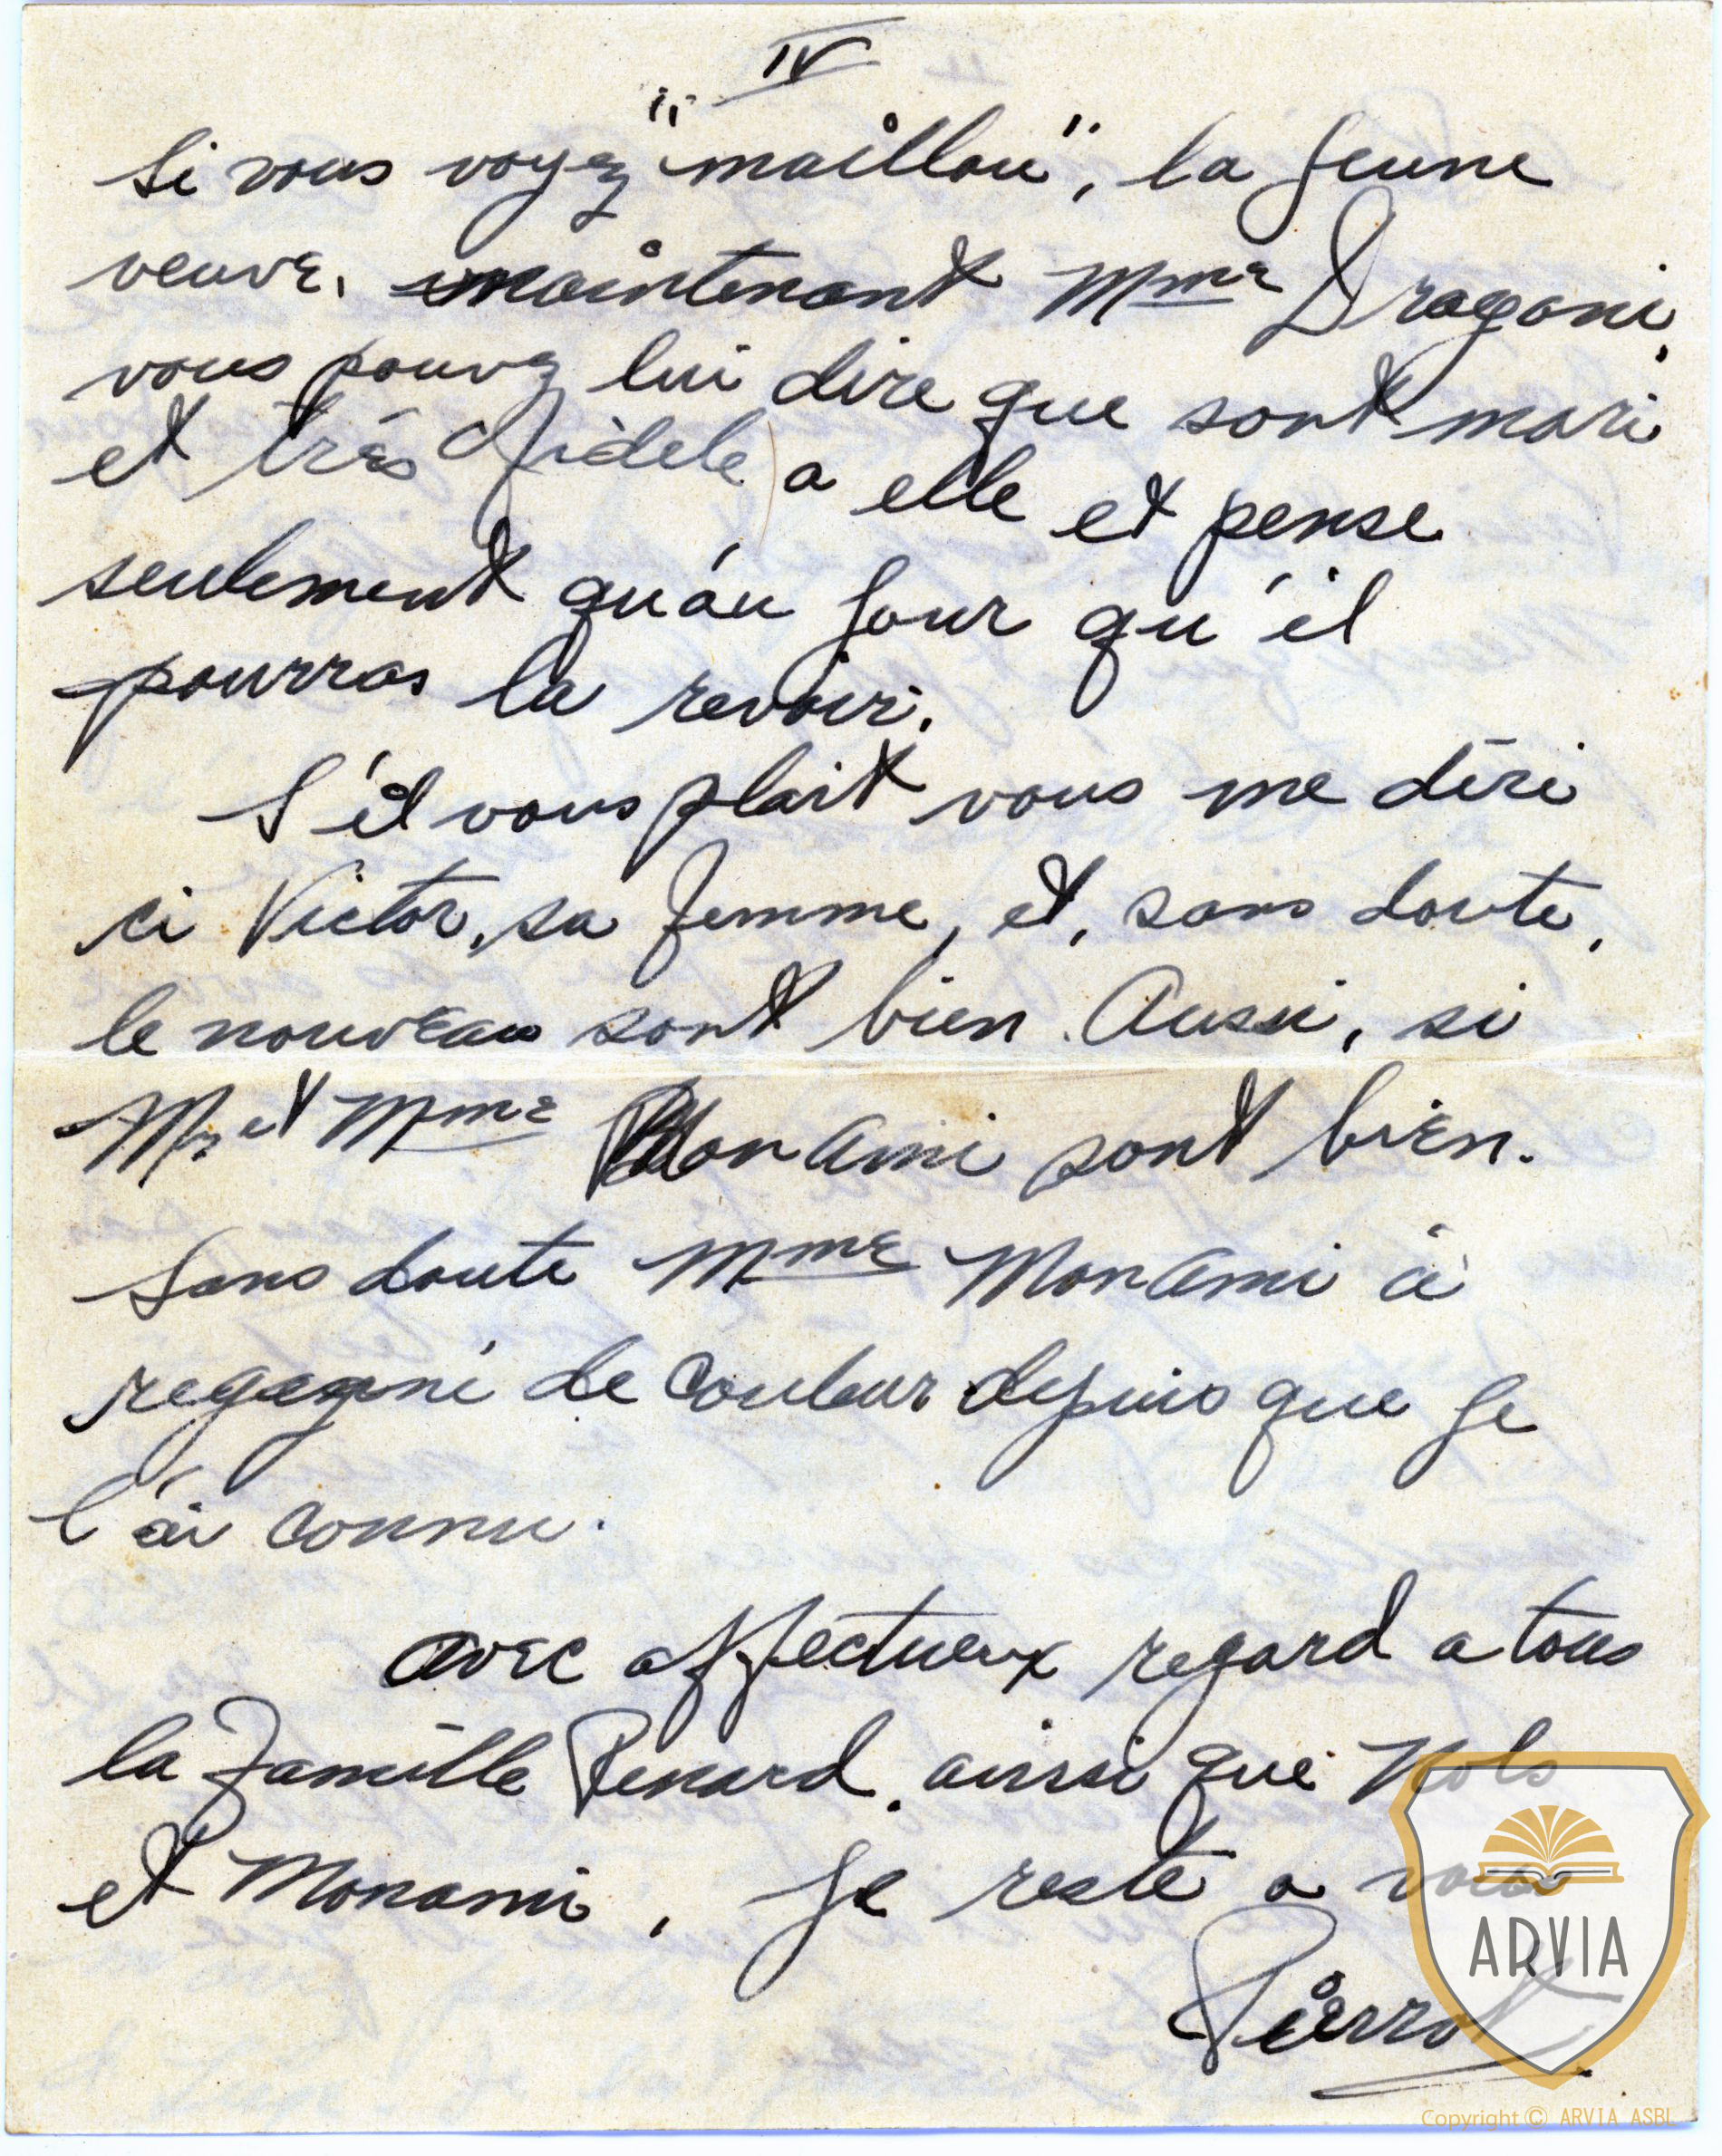 IV
Si vous voyez "maillou", la jeune
veuve. maintenant Mme Dragani,
vous pouvez lui dire que sont mari
et très fidèle a elle et pense
seulement qu'au jour qu'il
pourras la revoir.
S'il vous plait vous me diri
ci Victor, sa femme, et, sans doute,
le nouveau sont bien. Aussi, si
Mr et Mme MonAmi sont bien.
Sans doute Mme MonAmi à
regagné de couleur depuis que je
l'ai connu.
avec affectueux regard a tous
la famille Renard. ainsi que Nols
et Monami, Je reste a vous
Pierrot
ARVIA
Copyright © ARVIA ASBL